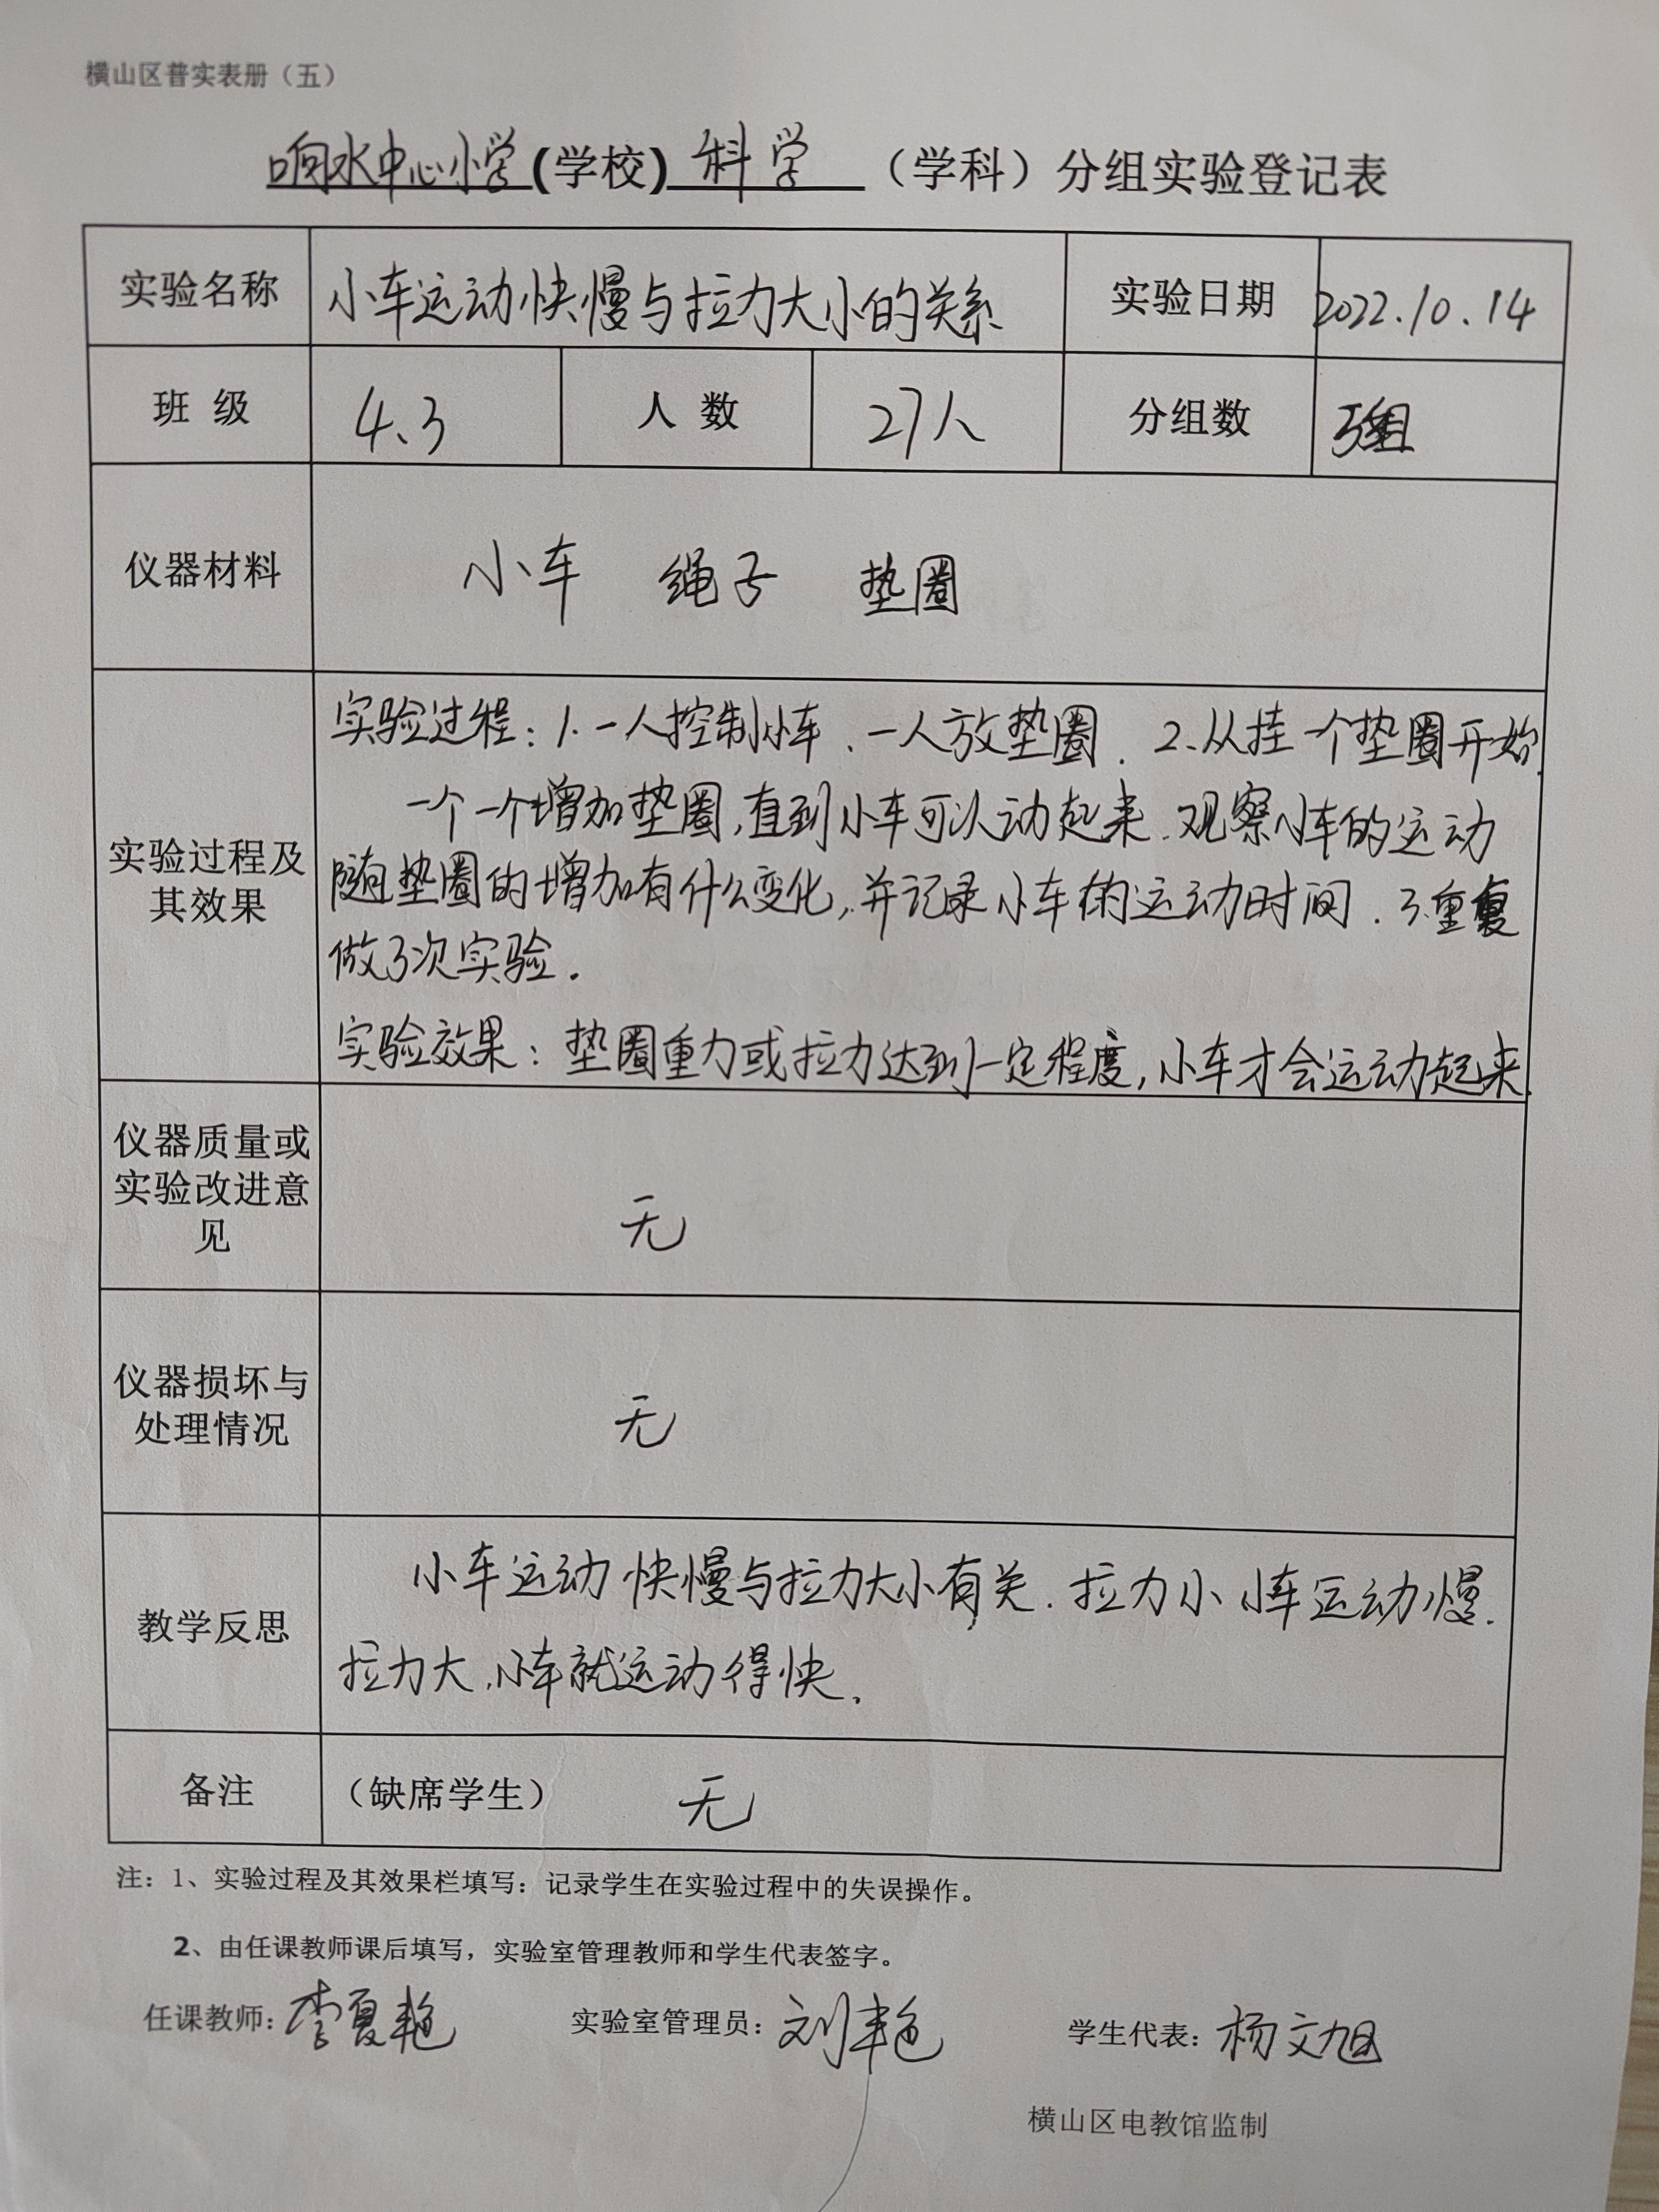 横山区普实表册（五）
响水中心小学(学校)科学（学科）分组实验登记表
实验名称 小车运动快慢与拉力大小的关系 实验日期 2022.10.14
班 级 4.3 人 数 27人 分组数 3组
仪器材料 小车 绳子 垫圈
实验过程：1.一人控制小车、一人放垫圈. 2.从挂一个垫圈开始.
一个一个增加垫圈,直到小车可以动起来.观察小车的运动
实验过程及
其效果
随垫圈的增加有什么变化,并记录小车的运动时间. 3.重复
做了3次实验.
实验效果：垫圈重力或拉力达到一定程度,小车才会运动起来.
仪器质量或
实验改进意
见
无
仪器损坏与
处理情况
无
教学反思
小车运动快慢与拉力大小有关.拉力小小车运动慢.
拉力大,小车就运动得快.
备注 （缺席学生） 无
注：1、实验过程及其效果栏填写：记录学生在实验过程中的失误操作。
2、由任课教师课后填写，实验室管理教师和学生代表签字。
任课教师：李夏艳 实验室管理员：刘艳 学生代表：杨文旭
横山区电教馆监制